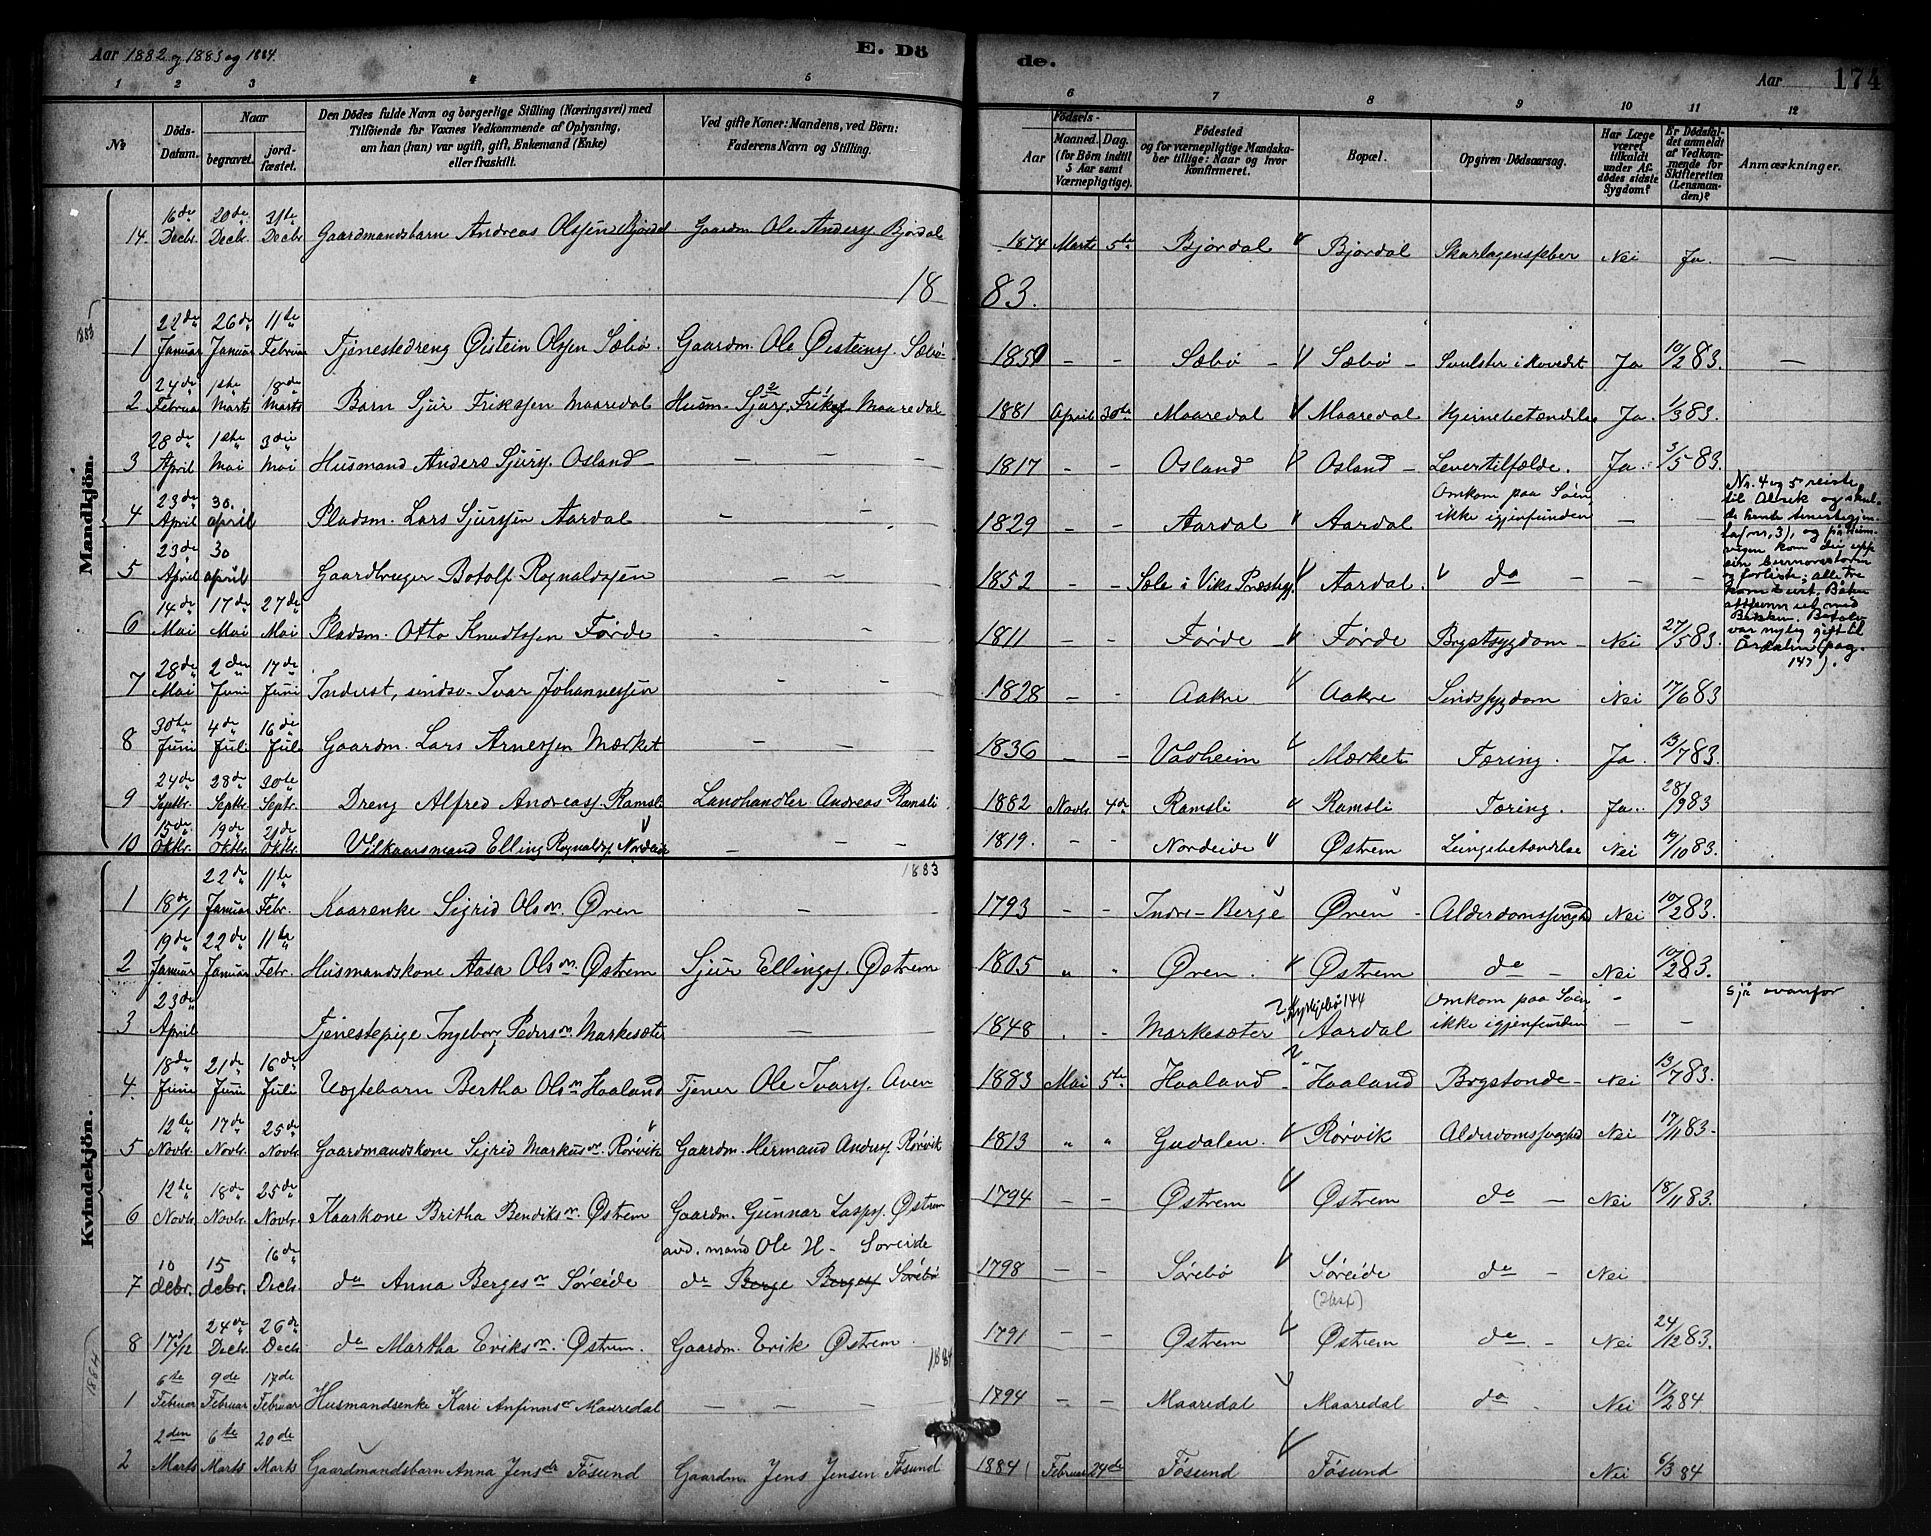 Aar 1882 og 1883 og 1884.
E. Dö
de.
Aar
174
1 2 3 4 5 6 7 8 9 10 11 12
No
Döds-Datum.
Naar
begravet.
jordfæstet.
Den Dödes fulde Navn og borgerlige Stilling (Næringsvei) med
Tilföiende for Voxnes Vedkommende af Oplysning,
om han (hun) var ugift, gift, Enkemand (Enke)
eller fraskilt.
Ved gifte Koner: Mandens, ved Börn:
Faderens Navn og Stilling.
Födsels-
Aar
Maaned. Dag.
(for Börn indtil
5 Aar samt
Værnepligtige).
Födested
og for værnepligtige Mandska-
ber tillige: Naar og hvor
konfirmeret.
Bopæl.
Opgiven Dödsaarsag.
Har Læge
været
tilkaldt
under Af-
dödes sidste
Sygdom?
Er Dödsfal-
det anmeldt
af Vedkom-
mende for
Skifteretten
(Lensman-
den)?
Anmærkninger.
14. 16de Decbr. 20de Decbr. 31te Decbr. Gaardmandsbarn Andreas Olssen Bjordal Gaardm. Ole Anderss. Bjordal 1874 Marts 5te Bjordal Bjordal Skarlagensfeber Nei Ja. —
1883.
1883
Mandkjön.
1 22de Januar 26de Januar 11te Februar Tjenestedreng Østein Olssen Sæbø. Gaardm. Ole Østeinss. Sæbø 1850 — — Sæbø — Sæbø — Svulster i Hovedet Ja 10/2 83. —
2 24de Februar 1ste Marts 18de Marts Barn Sjur Frikssen Maaredal Husm. Sjurs. Friks Maaredal 1881 April 30te Maaredal Maaredal Hjernebetændelse Ja. 1/3 83.
3 28de April 1ste Mai 3die Mai Husmand Anders Sjurss. Osland — — — 1817 — — Osland Osland — Levertilfælde. Ja. 3/5 83.
4 23de April 30. april Pladsm. Lars Sjurssen Aardal — — 1829 — — Aardal Aardal Omkom paa Søen ikke igjenfunden — —
5 23de April 30 april Gaardbruger Botolf Rognaldssen — — 1852 — — Sole i Viks Præstegj. Aardal. do — — —
Nr. 4 og 5 reiste
til Alvik og skul-
de hente tenestegjen-
ta (nr. 3), og på heim-
vegen kom dei upp
ein
og forliste; alle tre
kom burt. Båten
med
Botolv
var nylig gift til
Årdalen (pag.
147).
6 14de Mai 17de Mai 27de Mai Pladsm. Otto Knudtssen Førde — — 1811 — — Førde Førde Brystsygdom — Nei 27/5 83.
7 28de Mai 2den Juni 17de Juni Inderst, sindss. Ivar Johannessen — — 1828 — — Aakre Aakre Sindssygdom Nei 17/6 83
8 30te Juni 4de Juli 16de Juli Gaardm. Lars Arnessen Mærket — — — 1836 — — Vadheim Mærket Tæring. Ja. 13/7 83.
9 24de Septbr. 28de Septbr. 30te Septbr. Dreng Alfred Andreass. Ramsli Landhandler Andreas Ramsli 1882 Novbr. 4de Ramsli Ramsli Tæring. Ja. 28/9 83
10 15de Oktbr. 19de Oktbr. 21de Oktbr. Vilkaarsmand Elling Rognaldss. Nordeide — — — 1819. — — Nordeide Østrem Lungebetændelse Nei 19/10 83.
1883
Kvindekjön.
1 18de/1 22de Januar 11te Febr. Kaarenke Sigrid Olsdr. Øren — — 1793 — — Indre-Berge Øren — Alderdomssvaghed Nei 10/2 83.
2 19de Januar 22de Januar 11te Febr. Husmandskone Aasa Olsdr. Østrem Sjur Ellingss. Østrem 1805 " " Øren. Østrem do — Nei 10/2 83.
3 23de April Tjenestepige Ingeborg Pedersdr. Markesæter — 1848 . . Markesæter ? Kyrkjebø 144 Aardal Omkom paa Søen ikke igjenfunden — — sjå ovanfor
4. 18de Juni 21de Juni 16de Juli Uægtebarn Bertha Olsdr. Haaland Tjener Ole Ivarss. Aven 1883 Mai 5te Haaland — Haaland Brystonde — Nei 13/7 83.
5 12te Novbr. 17de Novbr. 25de Novbr. Gaardmandskone Sigrid Markusdr. Rørvik Gaardm. Hermand Anderss. Rørvik 1813 " " Gudalen. Rørvik Alderdomssvaghed Nei 17/11 83.
6 12te Novbr. 18de Novbr. 25de Novbr. Kaarkone Britha Bendiksdr. Østrem Gaardm. Gunnar Lasss. Østrem 1794 — — Østrem Østrem do — Nei 18/11 83.
7 10 decbr. 15 decbr. 16de Decbr. do Anna Bergesdr. Søreide do Berge Bergess Sørebø mand Ole H. Søreide 1798 — — Sørebø Søreide do — Nei
8 17de/12 24de Decbr. 26de Decbr. do Martha Eriksdr. Østrem. Gaardm. Erik Østrem 1791 — — Østrem Østrem do — Nei 24/12 83.
1884
1884
1 6te Februar 9de Februar 17de Februar Husmandsenke Kari Anfinnsdr. Maaredal — — — 1794 — — Maaredal Maaredal do Nei 17/2 84.
2 2den Marts 6te Marts 20de Marts Gaardmandsbarn Anna Jensdr. Tøsund Gaardm. Jens Jensen Tøsund 1884 Februar 24de Tøsund Tøsund Nei 6/3 84